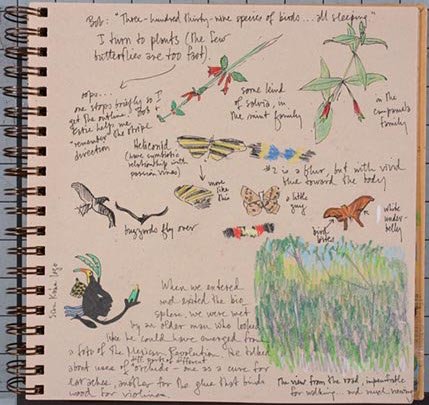 Bob: "Three-hundred thirty-nine species of birds...all sleeping"
I turn to plants (the few
butterflies are too fast).
oops...
one stops briefly so I
get the outline. Bob &
help me
"remember" the stripe
direction
some kind
of salvia, in
the mint family
in the
family
Heliconid
(have symbiotic
relationship with
passion vines)
more
like
this
#2 is a blur, but with vivid
blue toward the body
a little
guy
white
under-
belly
bird
bites
buzzards fly over
When we entered
and exited the big
we were met
by an older man who looked
like he could have emerged from
a foto of the Mexican Revolution. He talked
about uses of diff. parts of different orchids - one as a cure for
ear aches, another for the glue that binds
wood for violins.
The view from the road, impenetrable
for walking, and much